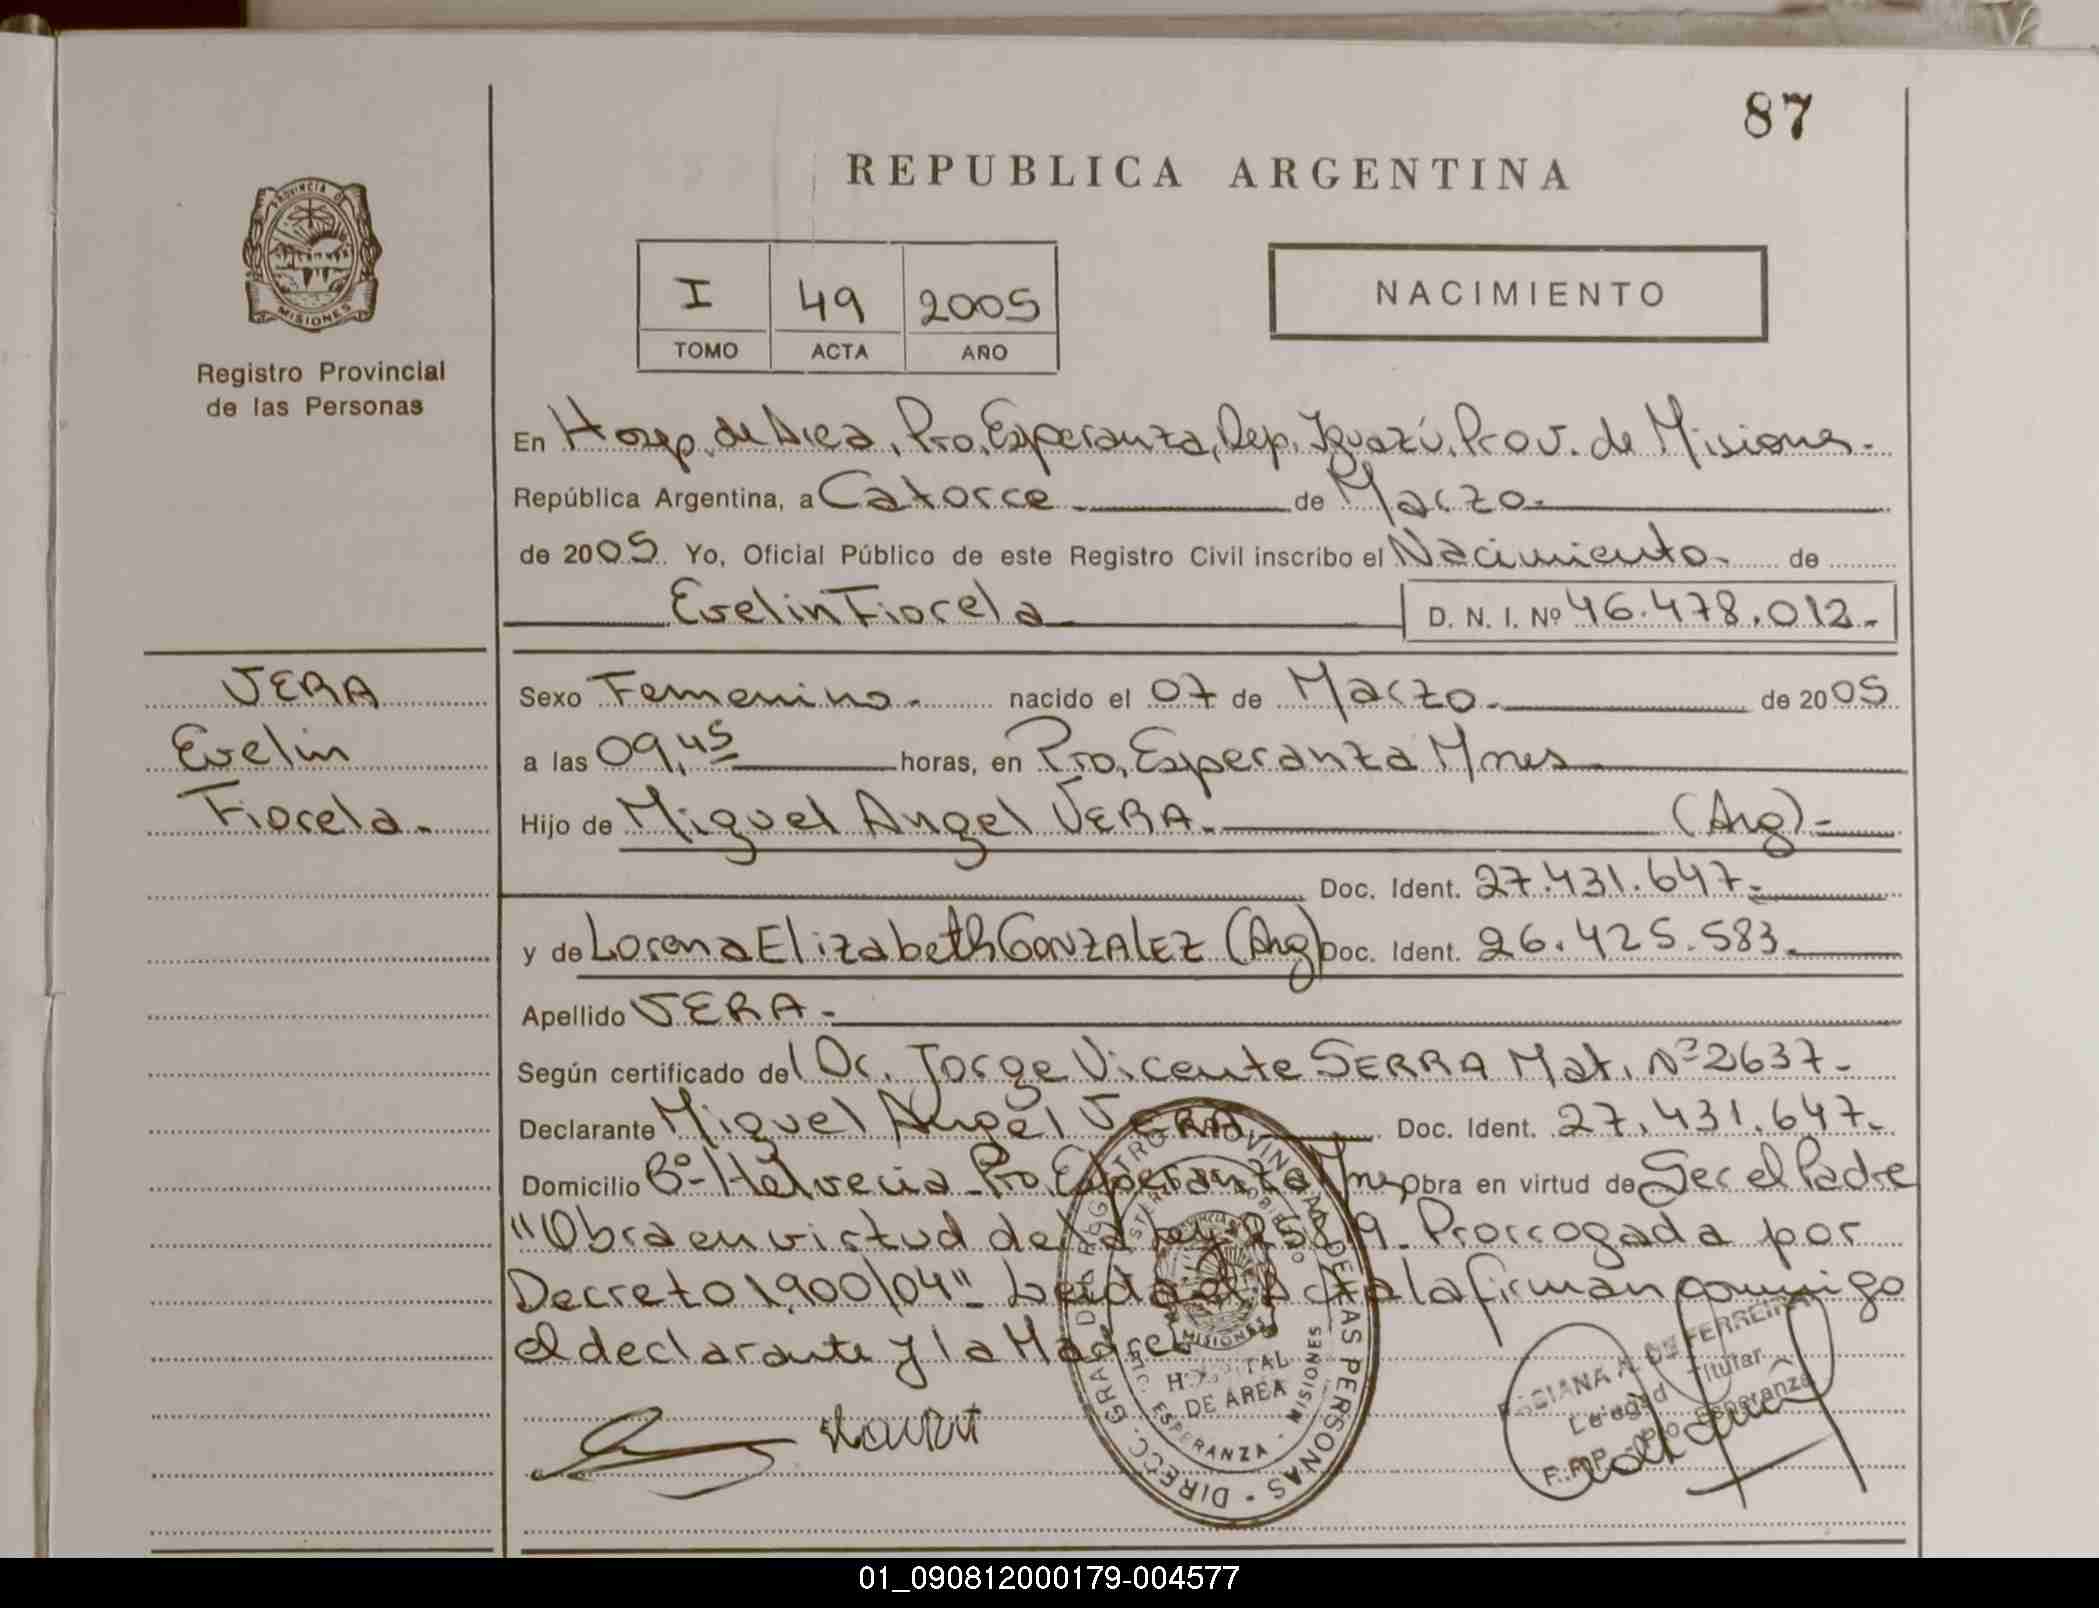 87
REPUBLICA ARGENTINA
PROVINCIA D
MISIONES
Registro Provincial
de las Personas
I 49 2005
TOMO ACTA AÑO
NACIMIENTO
En Hosp. de Area, Pto. Esperanza, Dep. Iguazú, Prov. de Misiones.
República Argentina, a Catorce de Marzo.
de 2005. Yo, Oficial Público de este Registro Civil inscribo el Nacimiento. de
Evelin Fiorela D. N. I. Nº 46.478.012.-
VERA
Evelin
Fiorela.
Sexo Femenino. nacido el 07 de Marzo. de 2005
a las 09,45 horas, en Pto. Esperanza Mnes.
Hijo de Miguel Angel VERA. (Arg).-
Doc. Ident. 27.431.647.-
y de Lorena Elizabeth GONZALEZ (Arg) Doc. Ident. 26.425.583.
Apellido VERA.-
Según certificado del Dr. Jorge Vicente SERRA Mat. Nº 2637.-
Declarante Miguel Angel VERA. Doc. Ident. 27.431.647.-
Domicilio Bº Helvecia - Pto. Esperanza Mnes Obra en virtud de Ser el Padre
"Obra en virtud de la Ley 25819. Prorrogada por
Decreto 1.900/04". Leida el Acta la firman conmigo
el declarante y la Madre.
DIRECC. GRAL. DEL REGISTRO PROVINCIAL DE LAS PERSONAS
MISIONES
HOSPITAL
DE AREA
ESPERANZA - MISIONES
A. DE FERREIRA
Titular
Pto. Esperanza
01_090812000179-004577